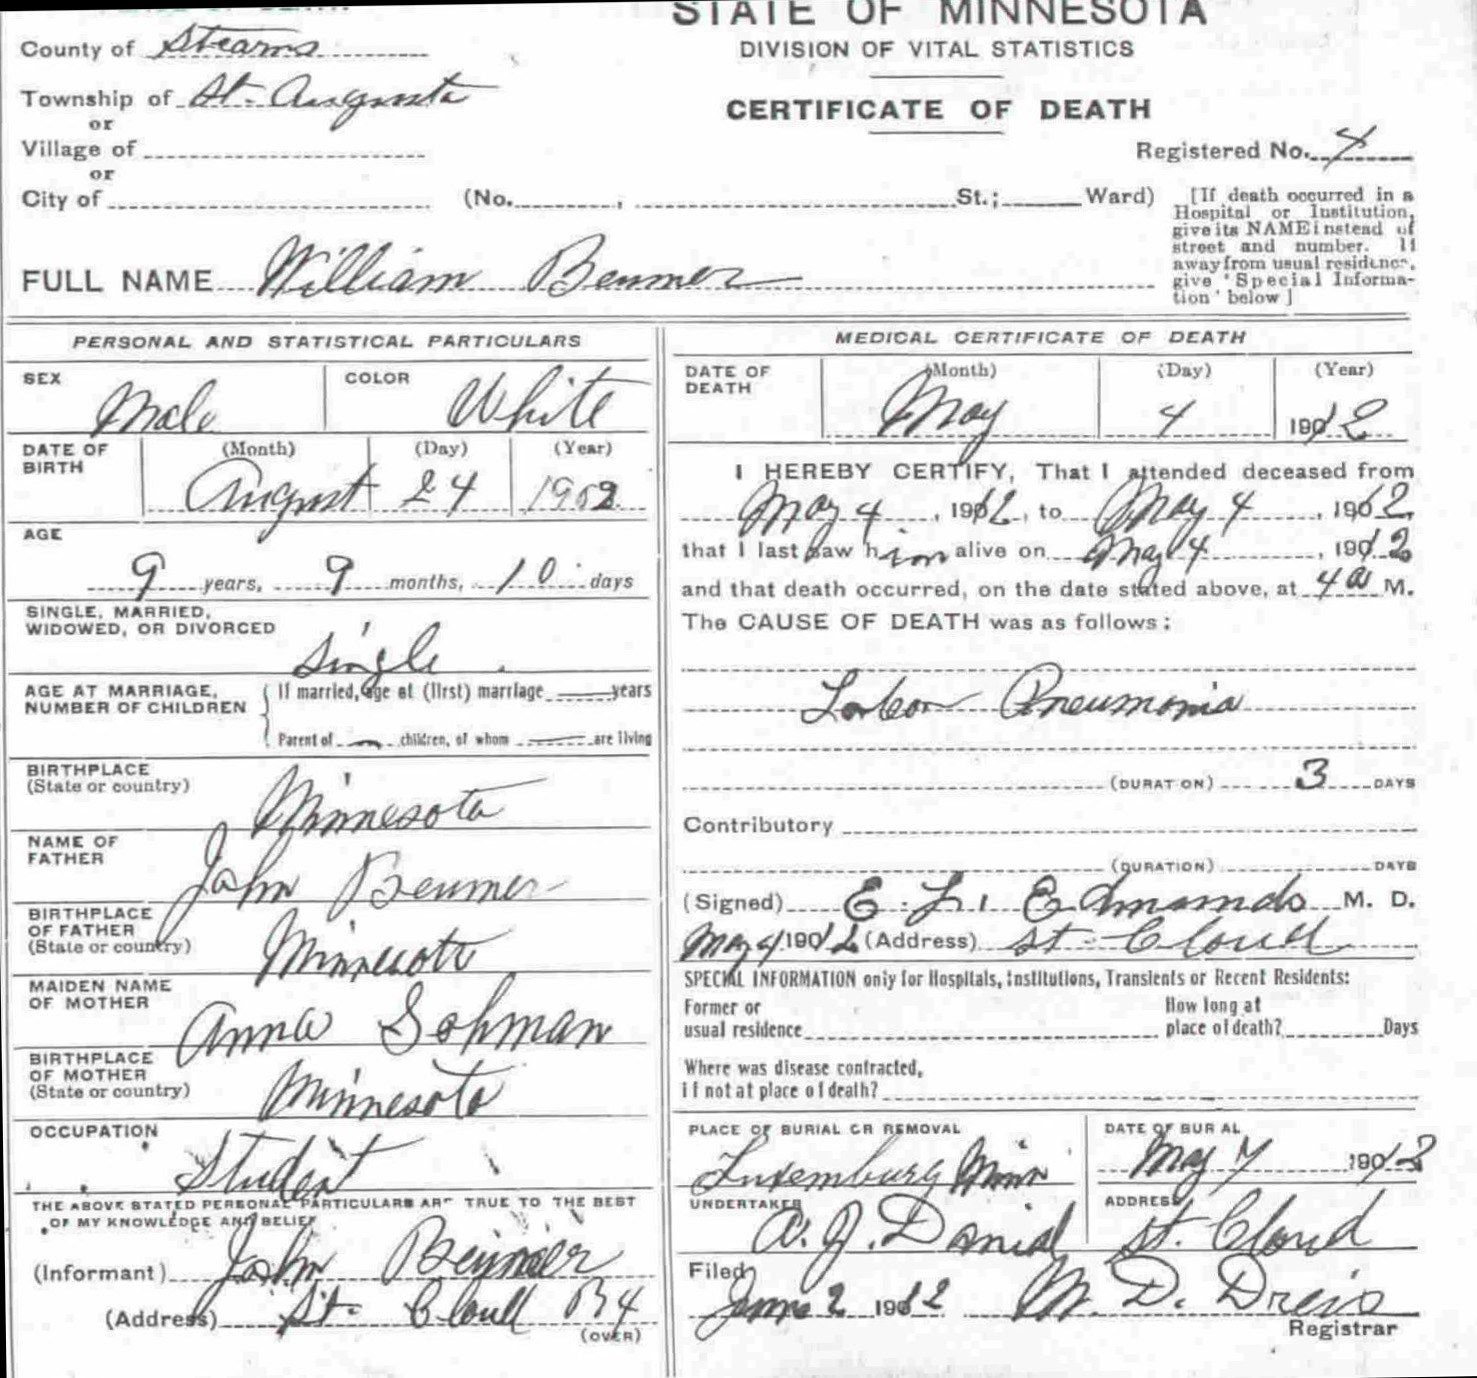 STATE OF MINNESOTA
DIVISION OF VITAL STATISTICS
CERTIFICATE OF DEATH
County of Stearns
Township of St. Augusta
or
Village of
or
City of (No. , St.; Ward)
Registered No. 4
[If death occurred in a
Hospital or Institution,
give its NAME instead of
street and number. If
away from usual residence,
give 'Special Informa-
tion' below]
FULL NAME William Beumer
PERSONAL AND STATISTICAL PARTICULARS
SEX Male COLOR White
DATE OF BIRTH (Month) (Day) (Year)
August 24 1902
AGE
9 years, 9 months, 10 days
SINGLE, MARRIED,
WIDOWED, OR DIVORCED
Single
AGE AT MARRIAGE, If married, age at (first) marriage years
NUMBER OF CHILDREN
Parent of children, of whom are living
BIRTHPLACE
(State or country) Minnesota
NAME OF
FATHER John Beumer
BIRTHPLACE
OF FATHER
(State or country) Minnesota
MAIDEN NAME
OF MOTHER Anna Sohman
BIRTHPLACE
OF MOTHER
(State or country) Minnesota
OCCUPATION
Student
THE ABOVE STATED PERSONAL PARTICULARS ARE TRUE TO THE BEST
OF MY KNOWLEDGE AND BELIEF
(Informant) John Beumer
(Address) St. Cloud R4
(OVER)
MEDICAL CERTIFICATE OF DEATH
DATE OF DEATH (Month) (Day) (Year)
May 4 1912
I HEREBY CERTIFY, That I attended deceased from
May 4, 1912, to May 4, 1912,
that I last saw him alive on May 4, 1912
and that death occurred, on the date stated above, at 4 a M.
The CAUSE OF DEATH was as follows:
Lobar Pneumonia
(DURATION) 3 DAYS
Contributory
(DURATION) DAYS
(Signed) E. L. Edmands M. D.
May 4 1912 (Address) St. Cloud
SPECIAL INFORMATION only for Hospitals, Institutions, Transients or Recent Residents:
Former or How long at
usual residence place of death? Days
Where was disease contracted,
if not at place of death?
PLACE OF BURIAL OR REMOVAL DATE OF BURIAL
Luxemburg Minn May 7 1912
UNDERTAKER ADDRESS
A. J. Daniel St. Cloud
Filed
June 2 1912 M. D. Dreis
Registrar